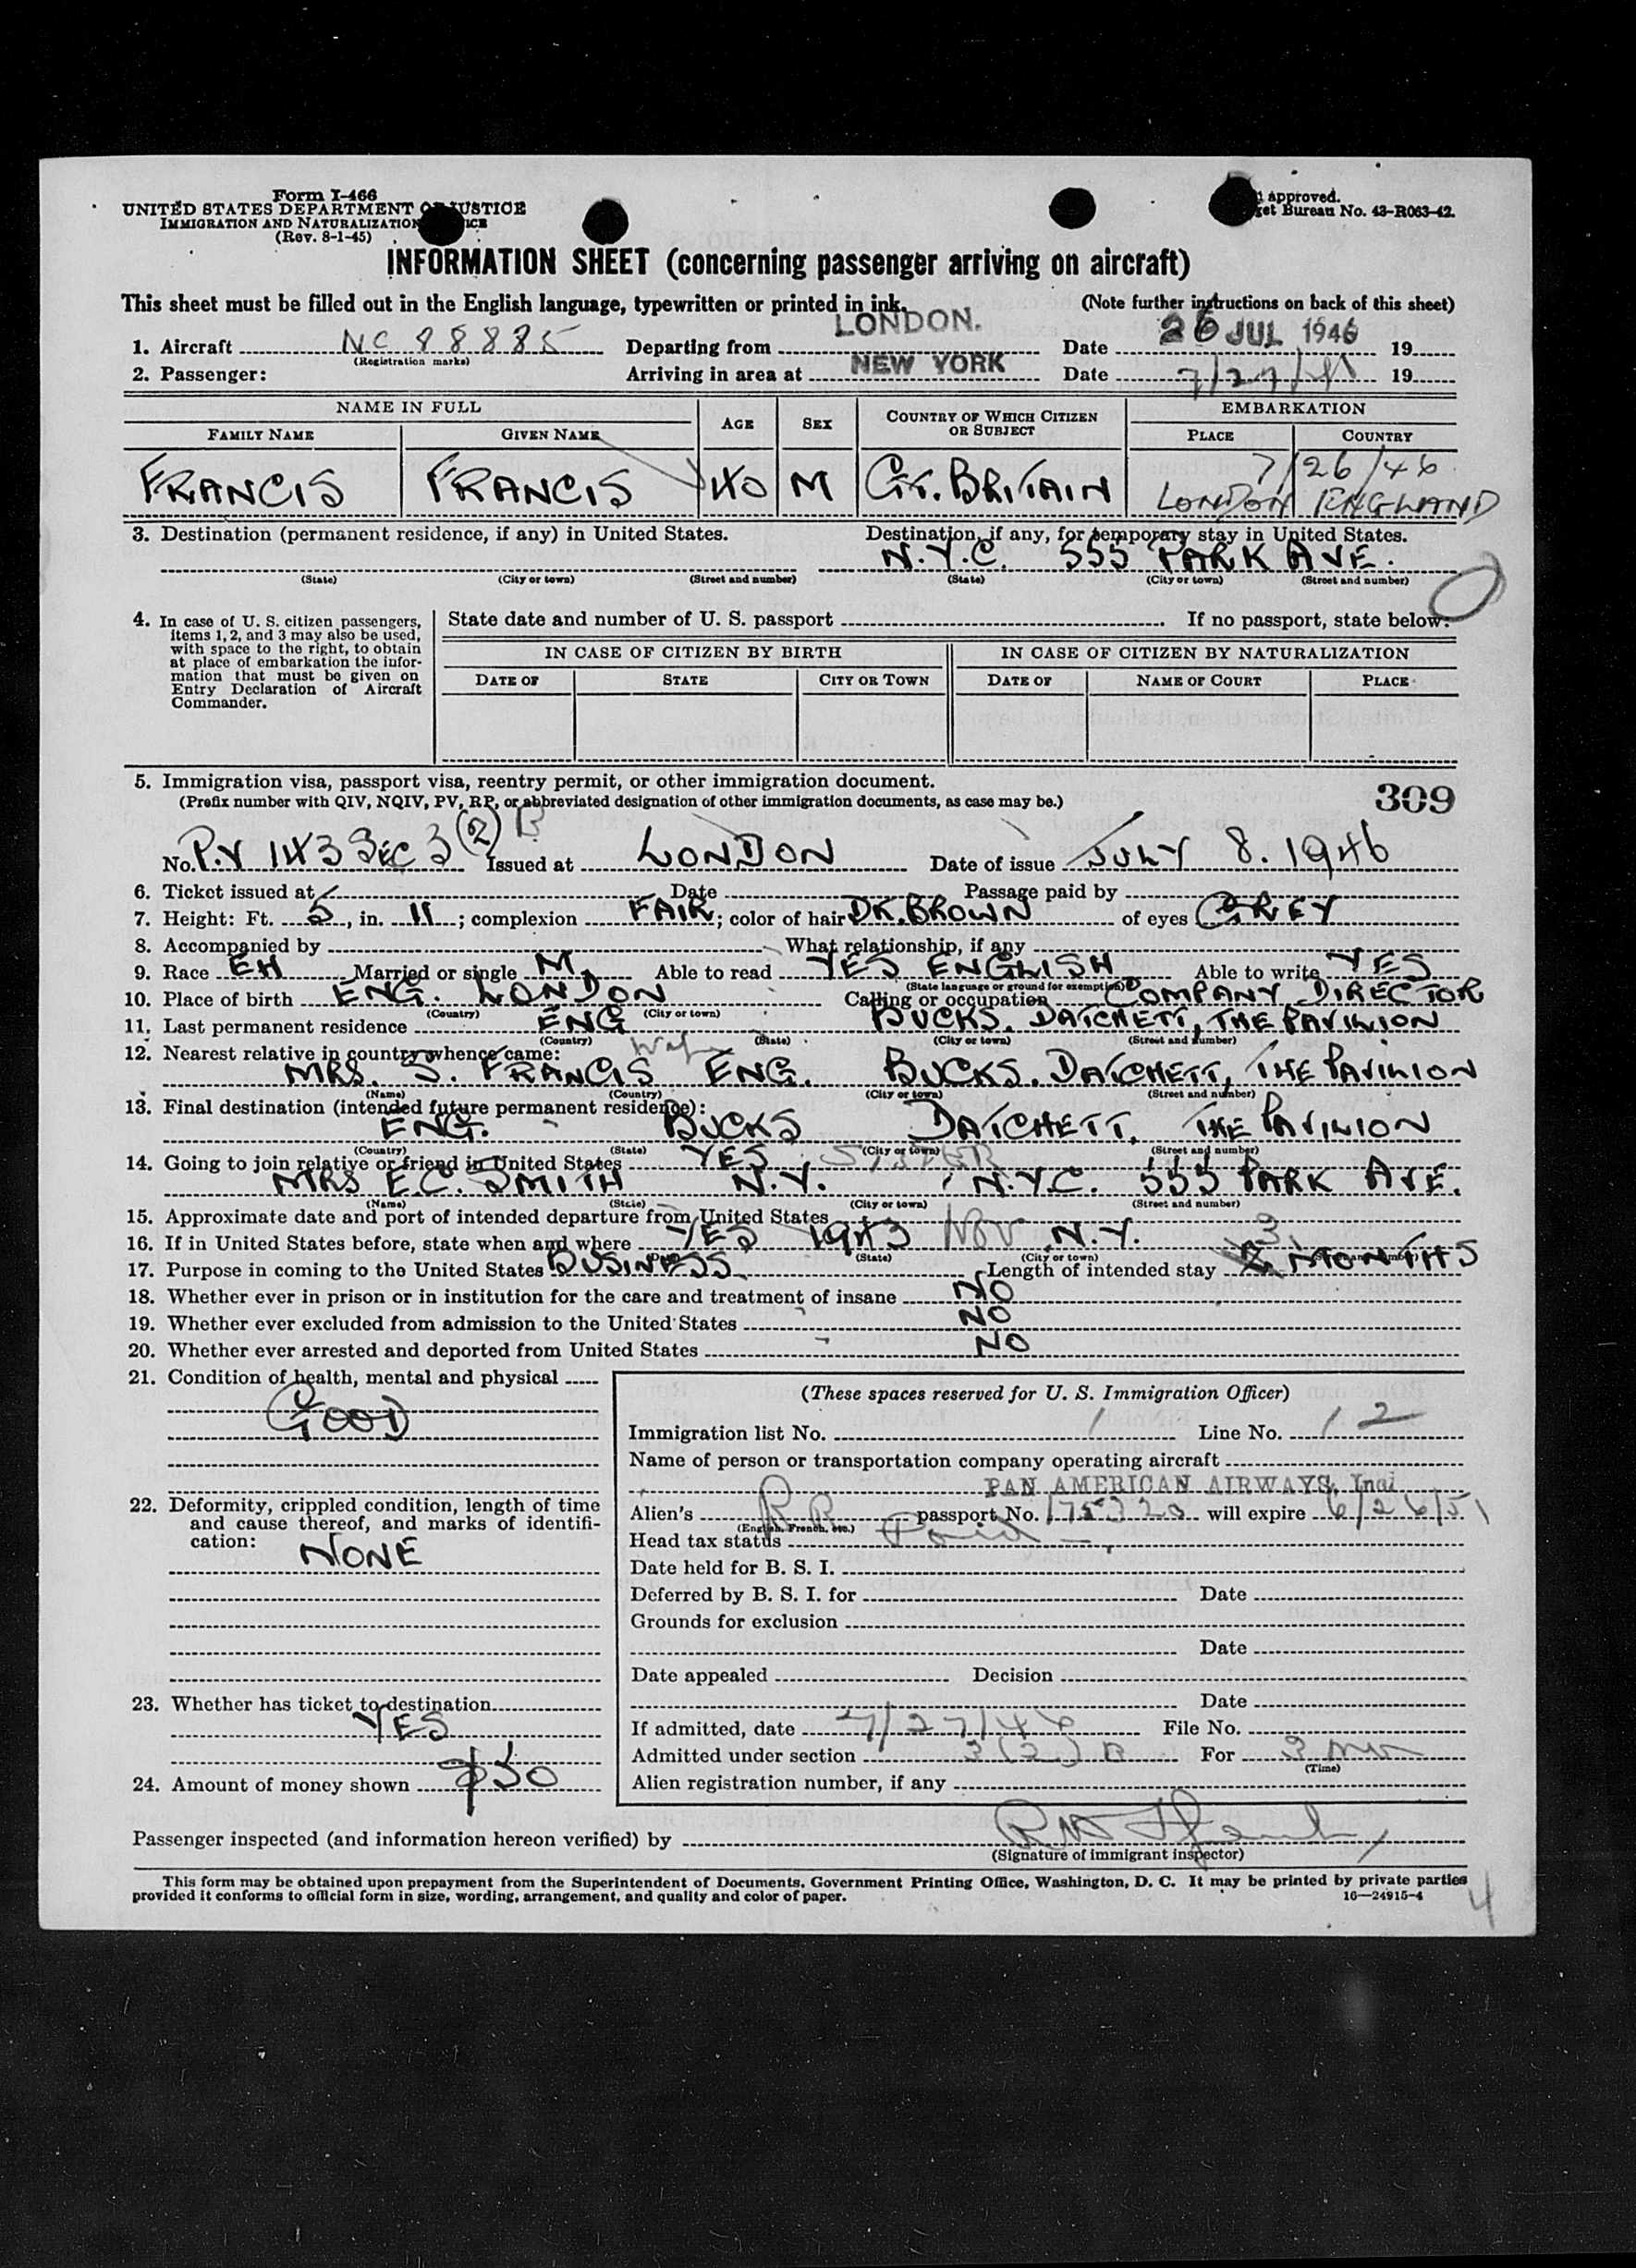 Form I-466
UNITED STATES DEPARTMENT OF JUSTICE
IMMIGRATION AND NATURALIZATION ICE
(Rev. 8-1-45)
approved.
et Bureau No. 43-R063-42.
INFORMATION SHEET (concerning passenger arriving on aircraft)
This sheet must be filled out in the English language, typewritten or printed in ink. (Note further instructions on back of this sheet)
1. Aircraft NC 88885 (Registration marks) Departing from LONDON. Date 26 JUL 1946 19
2. Passenger: Arriving in area at NEW YORK Date 7/27/ 19
NAME IN FULL AGE SEX COUNTRY OF WHICH CITIZEN OR SUBJECT EMBARKATION
FAMILY NAME GIVEN NAME PLACE COUNTRY
7/26/46
FRANCIS FRANCIS 40 M GT. BRITAIN LONDON ENGLAND
3. Destination (permanent residence, if any) in United States. Destination, if any, for temporary stay in United States.
N.Y.C. 555 PARK AVE.
(State) (City or town) (Street and number) (State) (City or town) (Street and number)
4. In case of U. S. citizen passengers, items 1, 2, and 3 may also be used, with space to the right, to obtain at place of embarkation the information that must be given on Entry Declaration of Aircraft Commander.
State date and number of U. S. passport If no passport, state below:
IN CASE OF CITIZEN BY BIRTH IN CASE OF CITIZEN BY NATURALIZATION
DATE OF STATE CITY OR TOWN DATE OF NAME OF COURT PLACE
5. Immigration visa, passport visa, reentry permit, or other immigration document.
(Prefix number with QIV, NQIV, PV, RP, or abbreviated designation of other immigration documents, as case may be.) 309
No. P.V 143 SEC 3 (2) B Issued at LONDON Date of issue JULY 8. 1946
6. Ticket issued at Date Passage paid by
7. Height: Ft. 5, in. 11; complexion FAIR; color of hair DK. BROWN of eyes GREY
8. Accompanied by What relationship, if any
9. Race EH Married or single M. Able to read YES ENGLISH Able to write YES
(State language or ground for exemption)
10. Place of birth ENG. LONDON Calling or occupation COMPANY DIRECTOR
(Country) (City or town)
11. Last permanent residence ENG BUCKS. DATCHETT, THE PAVILION
(Country) (State) (City or town) (Street and number)
12. Nearest relative in country whence came: Wife
MRS. S. FRANCIS ENG. BUCKS. DATCHETT, THE PAVILION
(Name) (Country) (City or town) (Street and number)
13. Final destination (intended future permanent residence):
ENG. BUCKS DATCHETT, THE PAVILION
(Country) (State) (City or town) (Street and number)
14. Going to join relative or friend in United States YES SISTER
MRS E.C. SMITH N.Y. N.Y.C. 555 PARK AVE.
(Name) (State) (City or town) (Street and number)
15. Approximate date and port of intended departure from United States
16. If in United States before, state when and where YES 1943 Nov N.Y.
(State) (City or town)
17. Purpose in coming to the United States BUSINESS Length of intended stay 3 MONTHS
18. Whether ever in prison or in institution for the care and treatment of insane NO
19. Whether ever excluded from admission to the United States NO
20. Whether ever arrested and deported from United States NO
21. Condition of health, mental and physical
GOOD
22. Deformity, crippled condition, length of time and cause thereof, and marks of identification:
NONE
23. Whether has ticket to destination
YES
24. Amount of money shown $50
(These spaces reserved for U. S. Immigration Officer)
Immigration list No. 1 Line No. 12
Name of person or transportation company operating aircraft
PAN AMERICAN AIRWAYS, Inc.
Alien's passport No. 175320 will expire 6/26/51
(English, French, etc.)
Head tax status Paid
Date held for B. S. I.
Deferred by B. S. I. for Date
Grounds for exclusion
Date
Date appealed Decision
Date
If admitted, date 7/27/46 File No.
Admitted under section 3(2) B For 3
(Time)
Alien registration number, if any
Passenger inspected (and information hereon verified) by
(Signature of immigrant inspector)
This form may be obtained upon prepayment from the Superintendent of Documents, Government Printing Office, Washington, D. C. It may be printed by private parties
provided it conforms to official form in size, wording, arrangement, and quality and color of paper. 16—24915-4
4